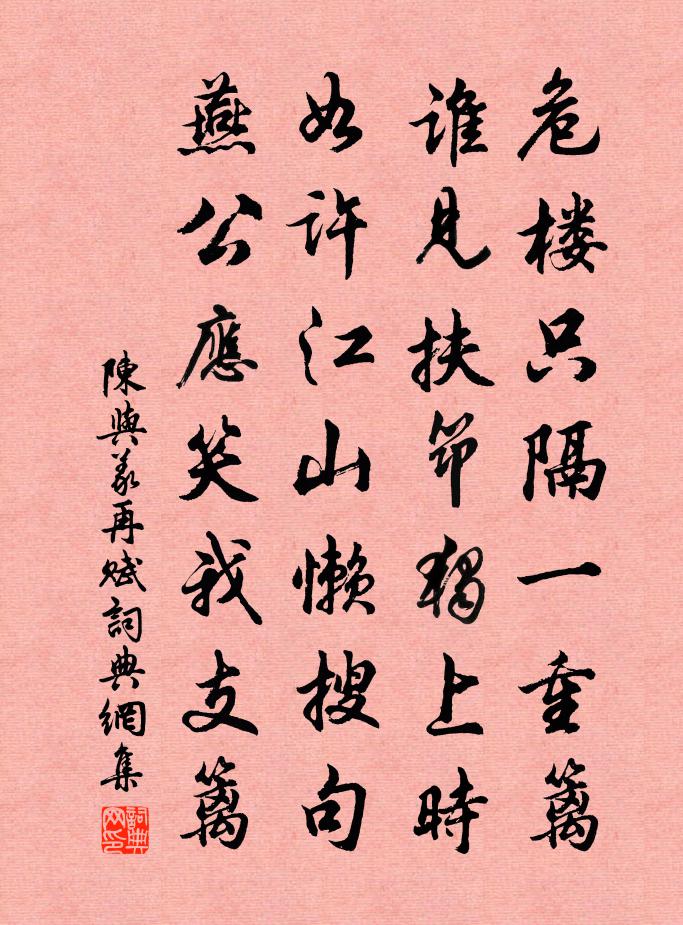 危楼只隔一重籬
誰見扶筇獨上時
如許江山懶搜句
燕公應笑我支籬
陳與義再賦詞典網集
詞典网印